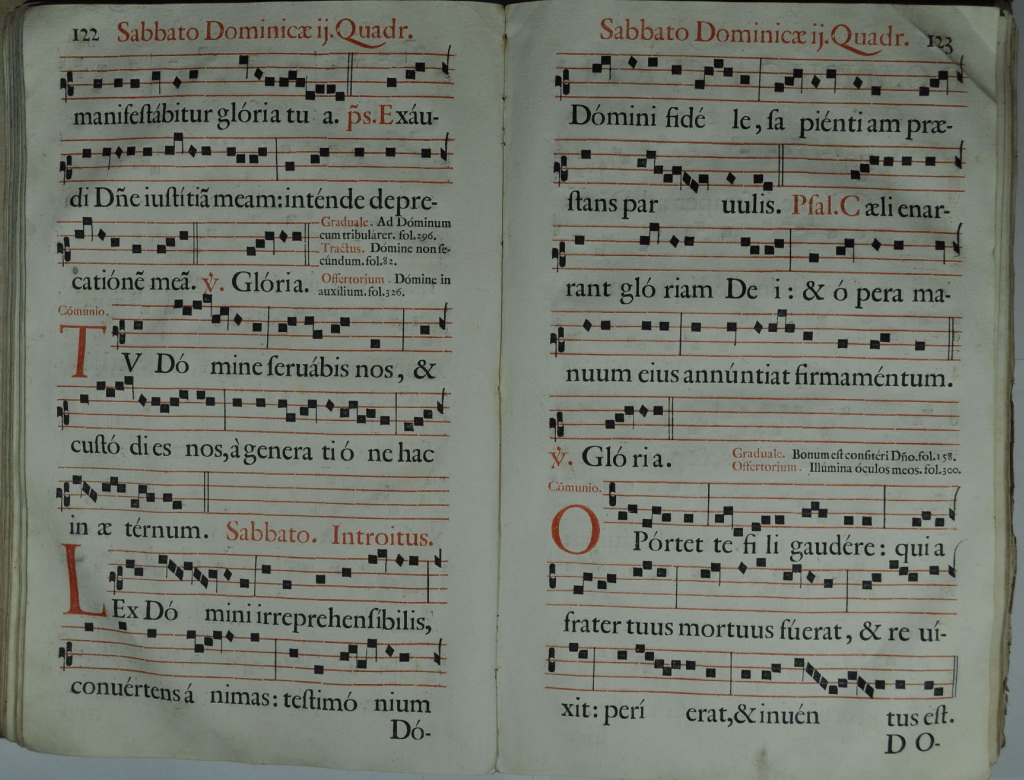 122 Sabbato Dominicæ ij. Quadr.
manifeſtábitur glória tu a. p̃s. Exáu-
di Dñe iuſtítiã meam: inténde depre-
Graduale. Ad Dóminum
cum tribulárer. fol. 296.
Tractus. Dómine non ſe-
cúndum. fol. 82.
catiónẽ meã. ℣. Glória.
Offertorium. Dómine in
auxilium. fol. 326.
Cõmunio.
TV Dó mine ſeruábis nos, &
cuſtó di es nos, à genera ti ó ne hac
in æ térnum. Sabbato. Introitus.
LEx Dó mini irreprehenſibilis,
conuértens á nimas: teſtimó nium
Dó-
Sabbato Dominicæ ij. Quadr. 123
Dómini fidé le, ſa piénti am præ-
ſtans par uulis. Pſal. Cæli enar-
rant gló riam De i: & ó pera ma-
nuum eius annúntiat firmaméntum.
℣. Gló ri a.
Graduale. Bonum eſt confitéri Dño. fol. 158.
Offertorium. Illúmina óculos meos. fol. 300.
Cõmunio.
OPórtet te fi li gaudére: qui a
frater tuus mortuus fúerat, & re uí-
xit: perí erat, & inuén tus eſt.
D O-